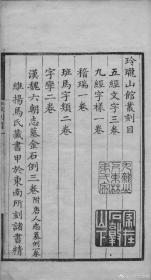 玲瓏山館叢刻目
五經文字三卷
九經字樣一卷
班馬字類二卷
稽瑞一卷
字鑒二卷
漢魏六朝志墓金石例三卷附唐人志墓例卷
維揚馬氏藏書甲於東南所刻諸書精